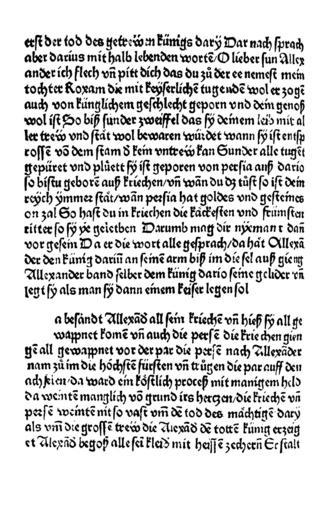 erst der tod des getrewen künigs dary Dar nach sprach
aber darius mit halb lebenden wortē/O lieber sun Allex
ander ich flech vn̄ pitt dich das du zů der ee nemest mein
tochter Roxam die mit keyserlichē tugendē wol erzogē
auch von künglichem geschlecht geporn vnd dein genoß
wol ist So biß sunder zweiffel das sy deinem leib mit al
ler trew vnd stāt wol bewaren würdet wann sy ist entsp
rossē vō dem stam d kein vntrew kan Sunder alle tuget
gepüret vnd plüett sy ist geporen von persia auß dario
so bistu geborē auß kriechen/vn̄ wān du dz tůst so ist dein
reych ÿmmer stāt/wān persia hat goldes vnd gesteines
on zal So hast du in kriechen die kāckesten vnd frümsten
ritter so sy ÿe geleibten Darumb mag dir nÿxmā t dan̄
vor gesein Da er die wort alle gesprach/da hāt Allexā
der den künig dariū an seinē arm biß im die sel auß gieng
Allexander band selber dem künig dario seine gelider vn̄
legt sy als man sy dann einem keiser legen sol
a besandt Allexād all sein kriechē vn̄ hieß sy all ge
wappnet komē vn̄ auch die persē die kriechen gien
gē all gewappnet vor der par die persē nach Allexāder
nam zů im die höchstē fürstē vn̄ trůgen die par auff den
achslen/da ward ein köstlich proceß mit manigem held
da weintē manglich vō grund irs hertzen/die kriechē vn̄
persē weintē nit so vast vm̄ dē tod des māchtigē darÿ
als vm̄ die grossē trew die Alexād dē tottē künig erzeig
et Alexād begoß alle sei kleid mit heissē zechern̄ Er stalt